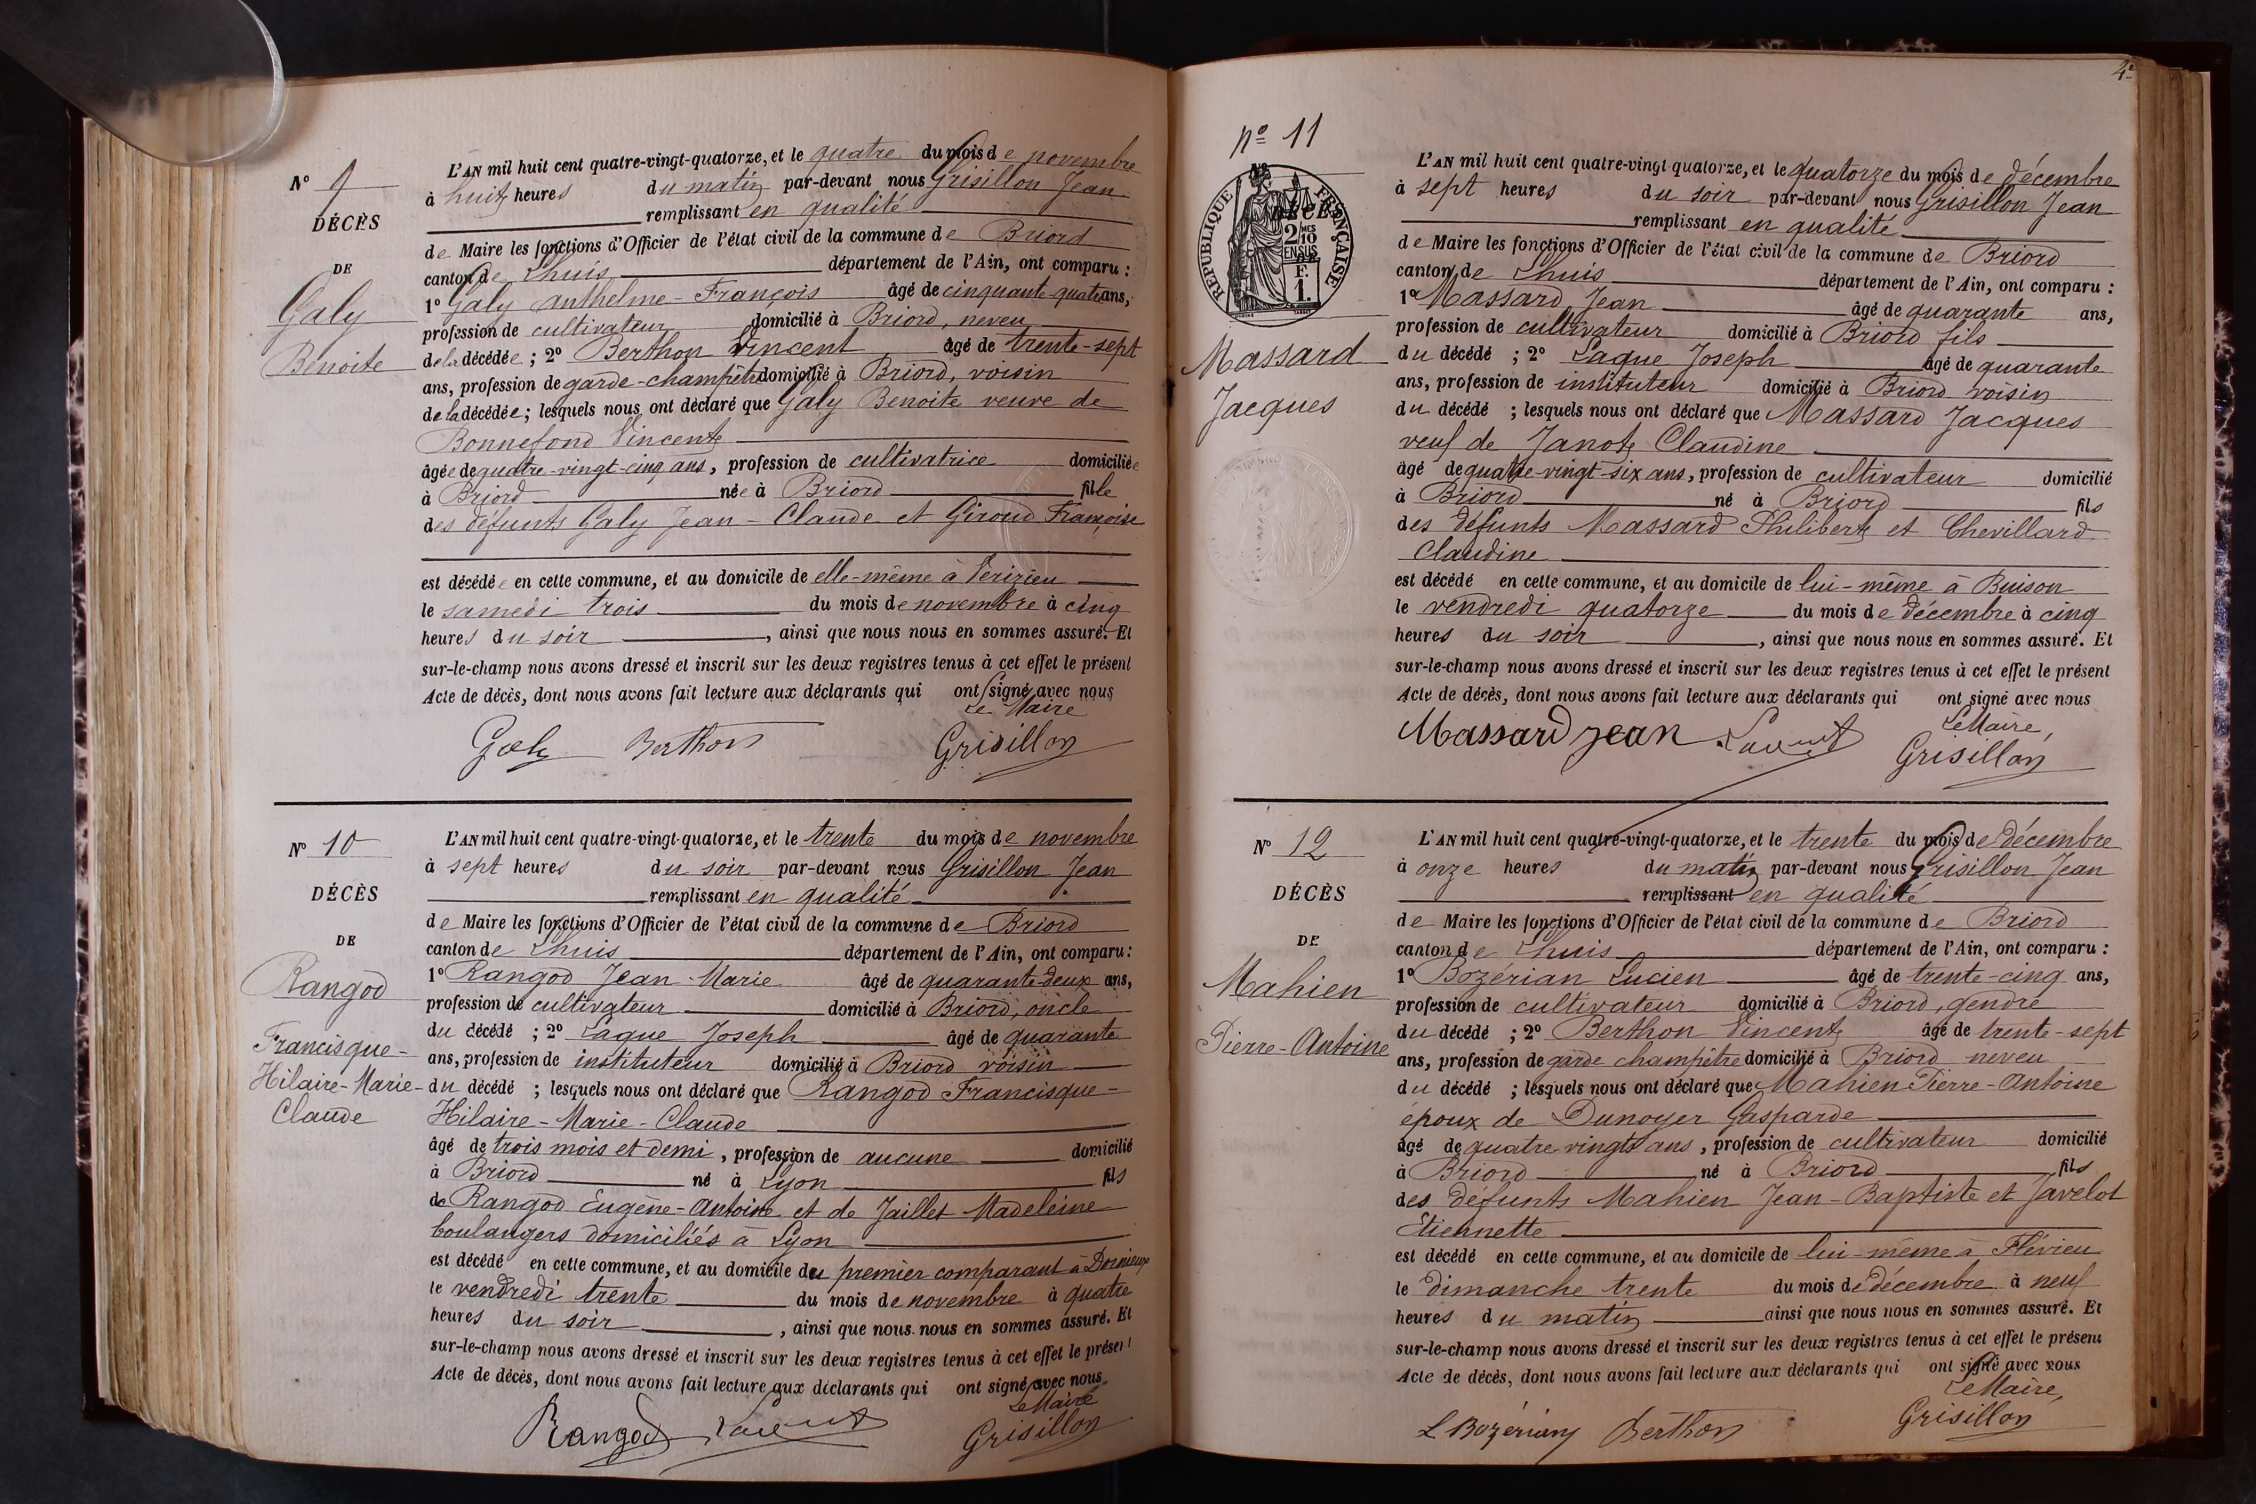 N° 9
DÉCÈS
DE
Galy
Benoite
L'AN mil huit cent quatre-vingt-quatorze, et le quatre du mois de novembre
à huit heures du matin par-devant nous Grisillon Jean
remplissant en qualité
de Maire les fonctions d'Officier de l'état civil de la commune de Briord
canton de Lhuis département de l'Ain, ont comparu :
1° Galy Anthelme-François âgé de cinquante-quatre ans,
profession de cultivateur domicilié à Briord, neveu
de la décédée ; 2° Berthon Vincent âgé de trente-sept
ans, profession de garde-champêtre domicilié à Briord, voisin
de la décédée ; lesquels nous ont déclaré que Galy Benoite veuve de
Bonnefond Vincent
âgée de quatre-vingt-cinq ans, profession de cultivatrice domiciliée
à Briord née à Briord fille
des défunts Galy Jean-Claude et Giroud Françoise
est décédée en cette commune, et au domicile de elle-même à Vérizieu
le samedi trois du mois de novembre à cinq
heures du soir, ainsi que nous nous en sommes assuré. Et
sur-le-champ nous avons dressé et inscrit sur les deux registres tenus à cet effet le présent
Acte de décès, dont nous avons fait lecture aux déclarants qui ont signé avec nous
Le Maire
Galy Berthon Grisillon
N° 10
DÉCÈS
DE
Rangod
Francisque-
Hilaire-Marie-
Claude
L'AN mil huit cent quatre-vingt-quatorze, et le trente du mois de novembre
à sept heures du soir par-devant nous Grisillon Jean
remplissant en qualité
de Maire les fonctions d'Officier de l'état civil de la commune de Briord
canton de Lhuis département de l'Ain, ont comparu :
1° Rangod Jean-Marie âgé de quarante-deux ans,
profession de cultivateur domicilié à Briord, oncle
du décédé ; 2° Laque Joseph âgé de quarante
ans, profession de instituteur domicilié à Briord voisin
du décédé ; lesquels nous ont déclaré que Rangod Francisque-
Hilaire-Marie-Claude
âgé de trois mois et demi, profession de aucune domicilié
à Briord né à Lyon fils
de Rangod Eugène-Antoine et de Jaillet Madeleine
boulangers domiciliés à Lyon
est décédé en cette commune, et au domicile du premier comparant à Dornieux
le vendredi trente du mois de novembre à quatre
heures du soir, ainsi que nous nous en sommes assuré. Et
sur-le-champ nous avons dressé et inscrit sur les deux registres tenus à cet effet le présent
Acte de décès, dont nous avons fait lecture aux déclarants qui ont signé avec nous
Le Maire
Rangod Grisillon
4e
N° 11
RÉPUBLIQUE FRANÇAISE
DÉCÈS
2/10 EN SUS
F. 1.
Massard
Jacques
L'AN mil huit cent quatre-vingt quatorze, et le quatorze du mois de décembre
à sept heures du soir par-devant nous Grisillon Jean
remplissant en qualité
de Maire les fonctions d'Officier de l'état civil de la commune de Briord
canton de Lhuis département de l'Ain, ont comparu :
1° Massard Jean âgé de quarante ans,
profession de cultivateur domicilié à Briord fils
du décédé ; 2° Laque Joseph âgé de quarante
ans, profession de instituteur domicilié à Briord voisin
du décédé ; lesquels nous ont déclaré que Massard Jacques
veuf de Janot Claudine
âgé de quatre-vingt-six ans, profession de cultivateur domicilié
à Briord né à Briord fils
des défunts Massard Philibert et Chevillard
Claudine
est décédé en cette commune, et au domicile de lui-même à Buison
le vendredi quatorze du mois de décembre à cinq
heures du soir, ainsi que nous nous en sommes assuré. Et
sur-le-champ nous avons dressé et inscrit sur les deux registres tenus à cet effet le présent
Acte de décès, dont nous avons fait lecture aux déclarants qui ont signé avec nous
Le Maire,
Massard jean Grisillon
N° 12
DÉCÈS
DE
Mahien
Pierre-Antoine
L'AN mil huit cent quatre-vingt-quatorze, et le trente du mois de décembre
à onze heures du matin par-devant nous Grisillon Jean
remplissant en qualité
de Maire les fonctions d'Officier de l'état civil de la commune de Briord
canton de Lhuis département de l'Ain, ont comparu :
1° Bozérian Lucien âgé de trente-cinq ans,
profession de cultivateur domicilié à Briord, gendre
du décédé ; 2° Berthon Vincent âgé de trente-sept
ans, profession de garde champêtre domicilié à Briord neveu
du décédé ; lesquels nous ont déclaré que Mahien Pierre-Antoine
époux de Dunoyer Gasparde
âgé de quatre vingts ans, profession de cultivateur domicilié
à Briord né à Briord fils
des défunts Mahien Jean-Baptiste et Javelot
Etiennette
est décédé en cette commune, et au domicile de lui-même à Flévieu
le dimanche trente du mois de décembre à neuf
heures du matin ainsi que nous nous en sommes assuré. Et
sur-le-champ nous avons dressé et inscrit sur les deux registres tenus à cet effet le présent
Acte de décès, dont nous avons fait lecture aux déclarants qui ont signé avec nous
Le Maire,
L Bozérian Berthon Grisillon